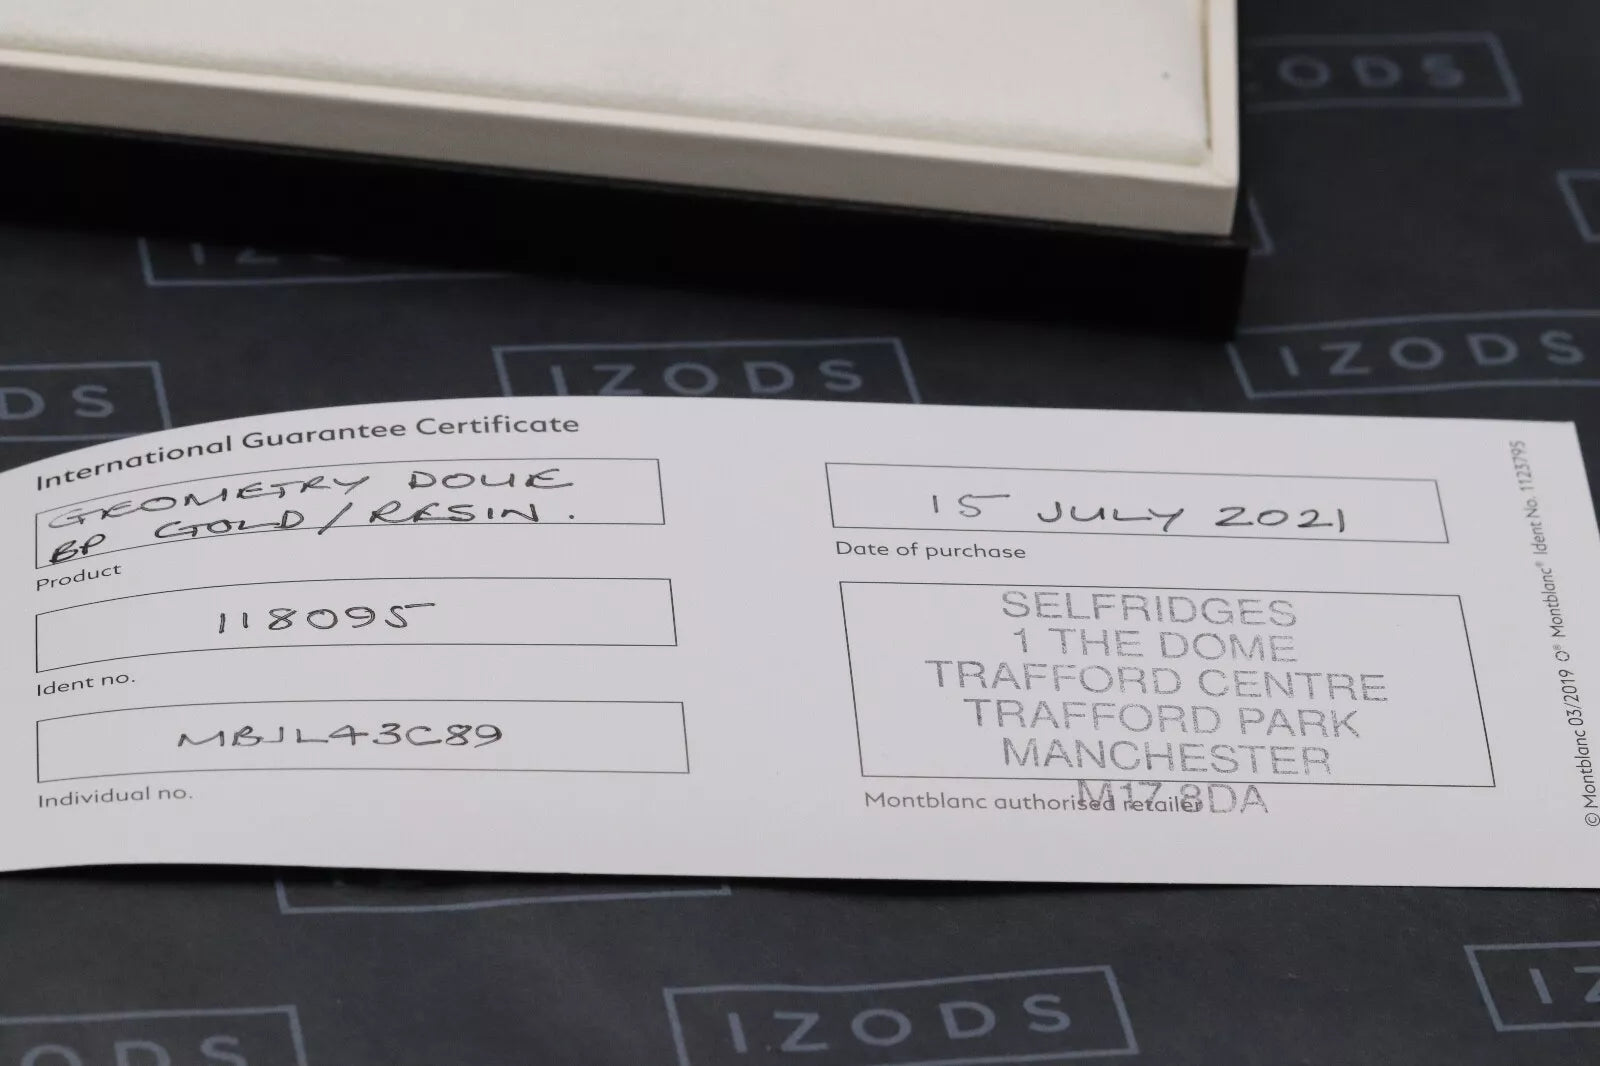 IZODS
IZODS
IZODS
International Guarantee Certificate
GEOMETRY DOUE
BP GOLD/RESIN.
Product
118095
Ident no.
MBJL43C89
Individual no.
15 JULY 2021
Date of purchase
SELFRIDGES
1 THE DOME
TRAFFORD CENTRE
TRAFFORD PARK
MANCHESTER
M17 8DA
Montblanc authorised retailer
© Montblanc 03/2019 O® Montblanc® Ident No. 1123795
IZODS